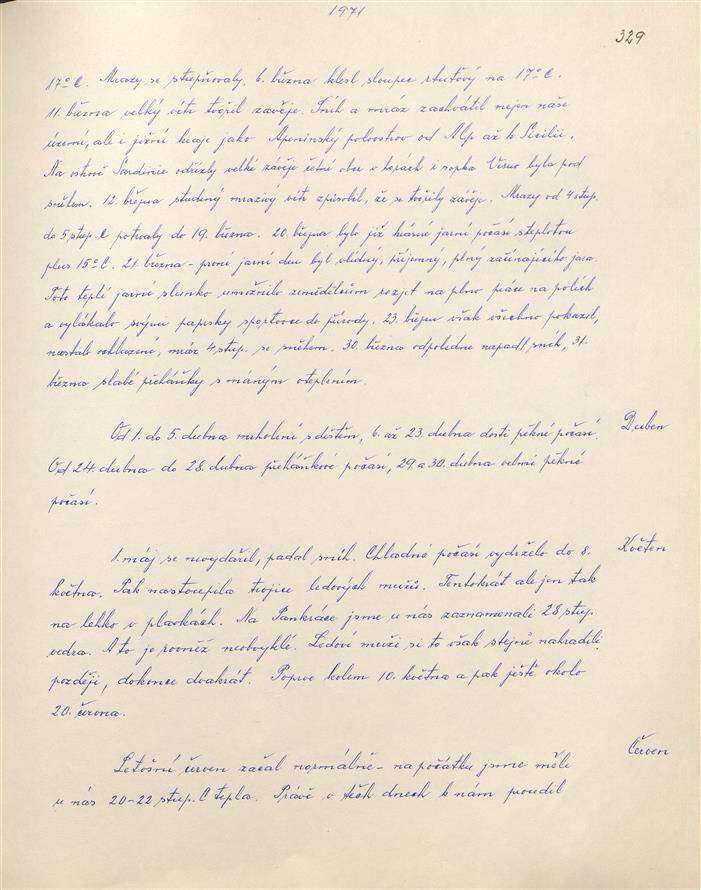 1971
329
17°C. Mrazy se stupňovaly. 6. března klesl sloupec rtuťový na 17°C.
11. března velký vítr tvořil závěje. Sníh a mráz zachvátil nejen naše
území, ale i jižní kraje jako Apeninský poloostrov od Alp až k Sicilii.
Na ostrově Sardinie odřízly velké závěje četné obce v horách i sopka Vesuv byla pod
sněhem. 12. března studený mrazivý vítr způsobil, že se tvořily závěje. Mrazy od 4 stup.
do 5 stup. C potrvaly do 19. března. 20. března bylo již krásné jarní počasí s teplotou
plus 15°C. 21. března - první jarní den byl vlídný, příjemný, plný začínajícího jara.
Toto teplé jarní slunko umožnilo zemědělcům rozjet na plno práce na polích
a vylákalo svými paprsky sportovce do přírody. 23. březen však všechno pokazil,
nastalo ochlazení, mráz 4 stup. se sněhem. 30. března odpoledne napadl sníh, 31.
března slabé přeháňky s mírným oteplením.
Od 1. do 5. dubna mrholení s deštěm, 6. až 23. dubna dosti pěkné počasí.
Duben
Od 24. dubna do 28. dubna přeháňkové počasí, 29. a 30. dubna velmi pěkné
počasí.
1. máj se nevydařil, padal sníh. Chladné počasí vydrželo do 8.
Květen
května. Pak nastoupila trojice ledových mužů. Tentokrát ale jen tak
na lehko v plavkách. Na Pankráce jsme u nás zaznamenali 28 stup.
vedra. A to je rovněž neobvyklé. Ledoví muži si to však stejně nahradili
později, dokonce dvakrát. Poprve kolem 10. května a pak ještě okolo
20. června.
Letošní červen začal normálně - na počátku jsme měli
Červen
u nás 20-22 stup. C tepla. Právě v těch dnech k nám proudil